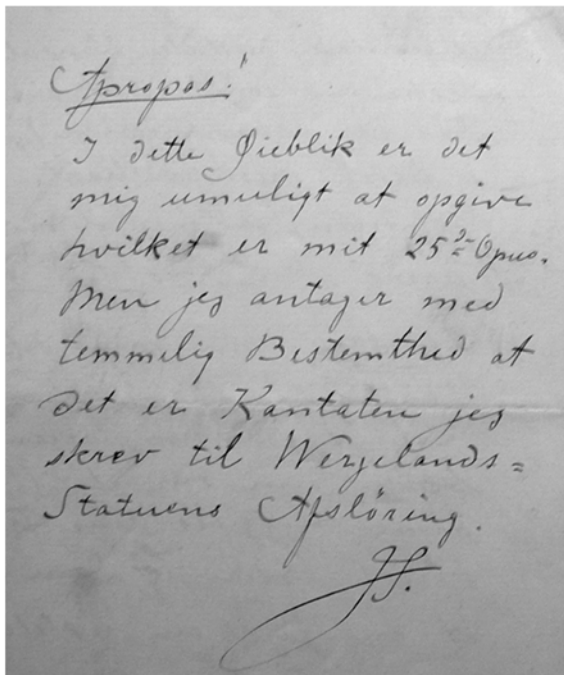 Apropos!
I dette Øieblik er det
mig umuligt at opgive
hvilket er mit 25de Opus.
Men jeg antager med
temmelig Bestemthed at
det er Kantaten jeg
skrev til Wergelands=
Statuens Afsløring.
JS.